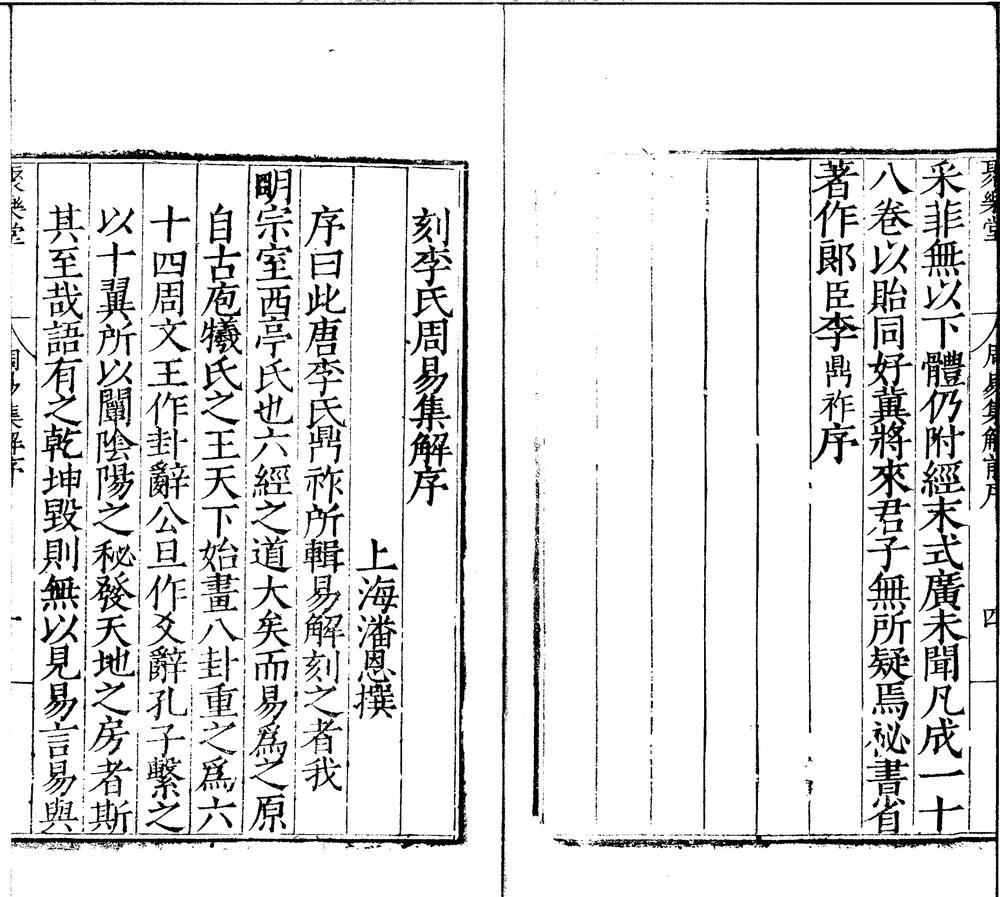 聚樂堂 周易集解前序 四
采菲無以下體仍附經末式廣未聞凡成一十
八卷以貽同好冀將來君子無所疑焉祕書省
著作郎臣李鼎祚序
刻李氏周易集解序
上海潘恩撰
序曰此唐李氏鼎祚所輯易解刻之者我
明宗室西亭氏也六經之道大矣而易爲之原
自古庖犧氏之王天下始畫八卦重之爲六
十四周文王作卦辭公旦作爻辭孔子繫之
以十翼所以闡陰陽之秘發天地之房者斯
其至哉語有之乾坤毀則無以見易言易與
聚樂堂 周易集解序 一